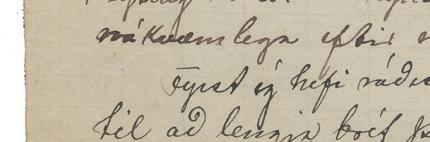 nákvæmlega eftir
Fyrst eg hefi ráðis
til að lengja bréf